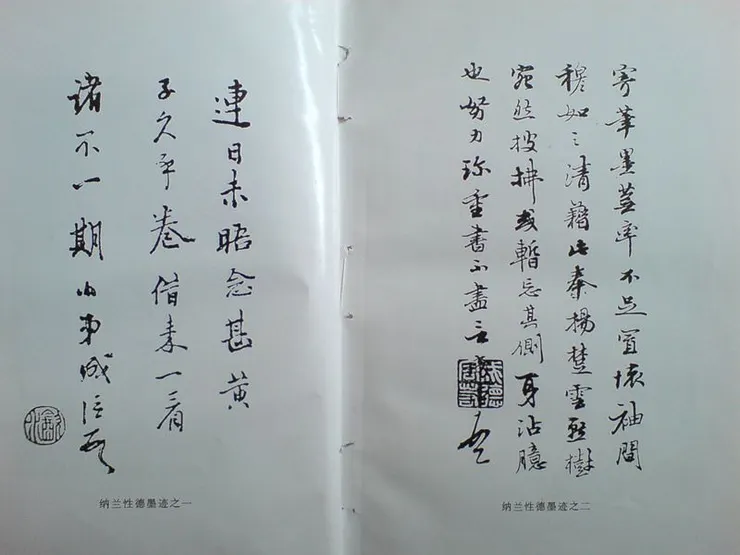 連日未晤念甚黃
子久手卷借来一看
諸不一期小弟成德頓
纳兰性德墨迹之一
寄墨蓋率不足置懷袖間
穆如之清藉此奉揚楚雲燕樹
宛然披拂或暫忘其側身沾臆
也努力珍重書不盡言
纳兰性德墨迹之二